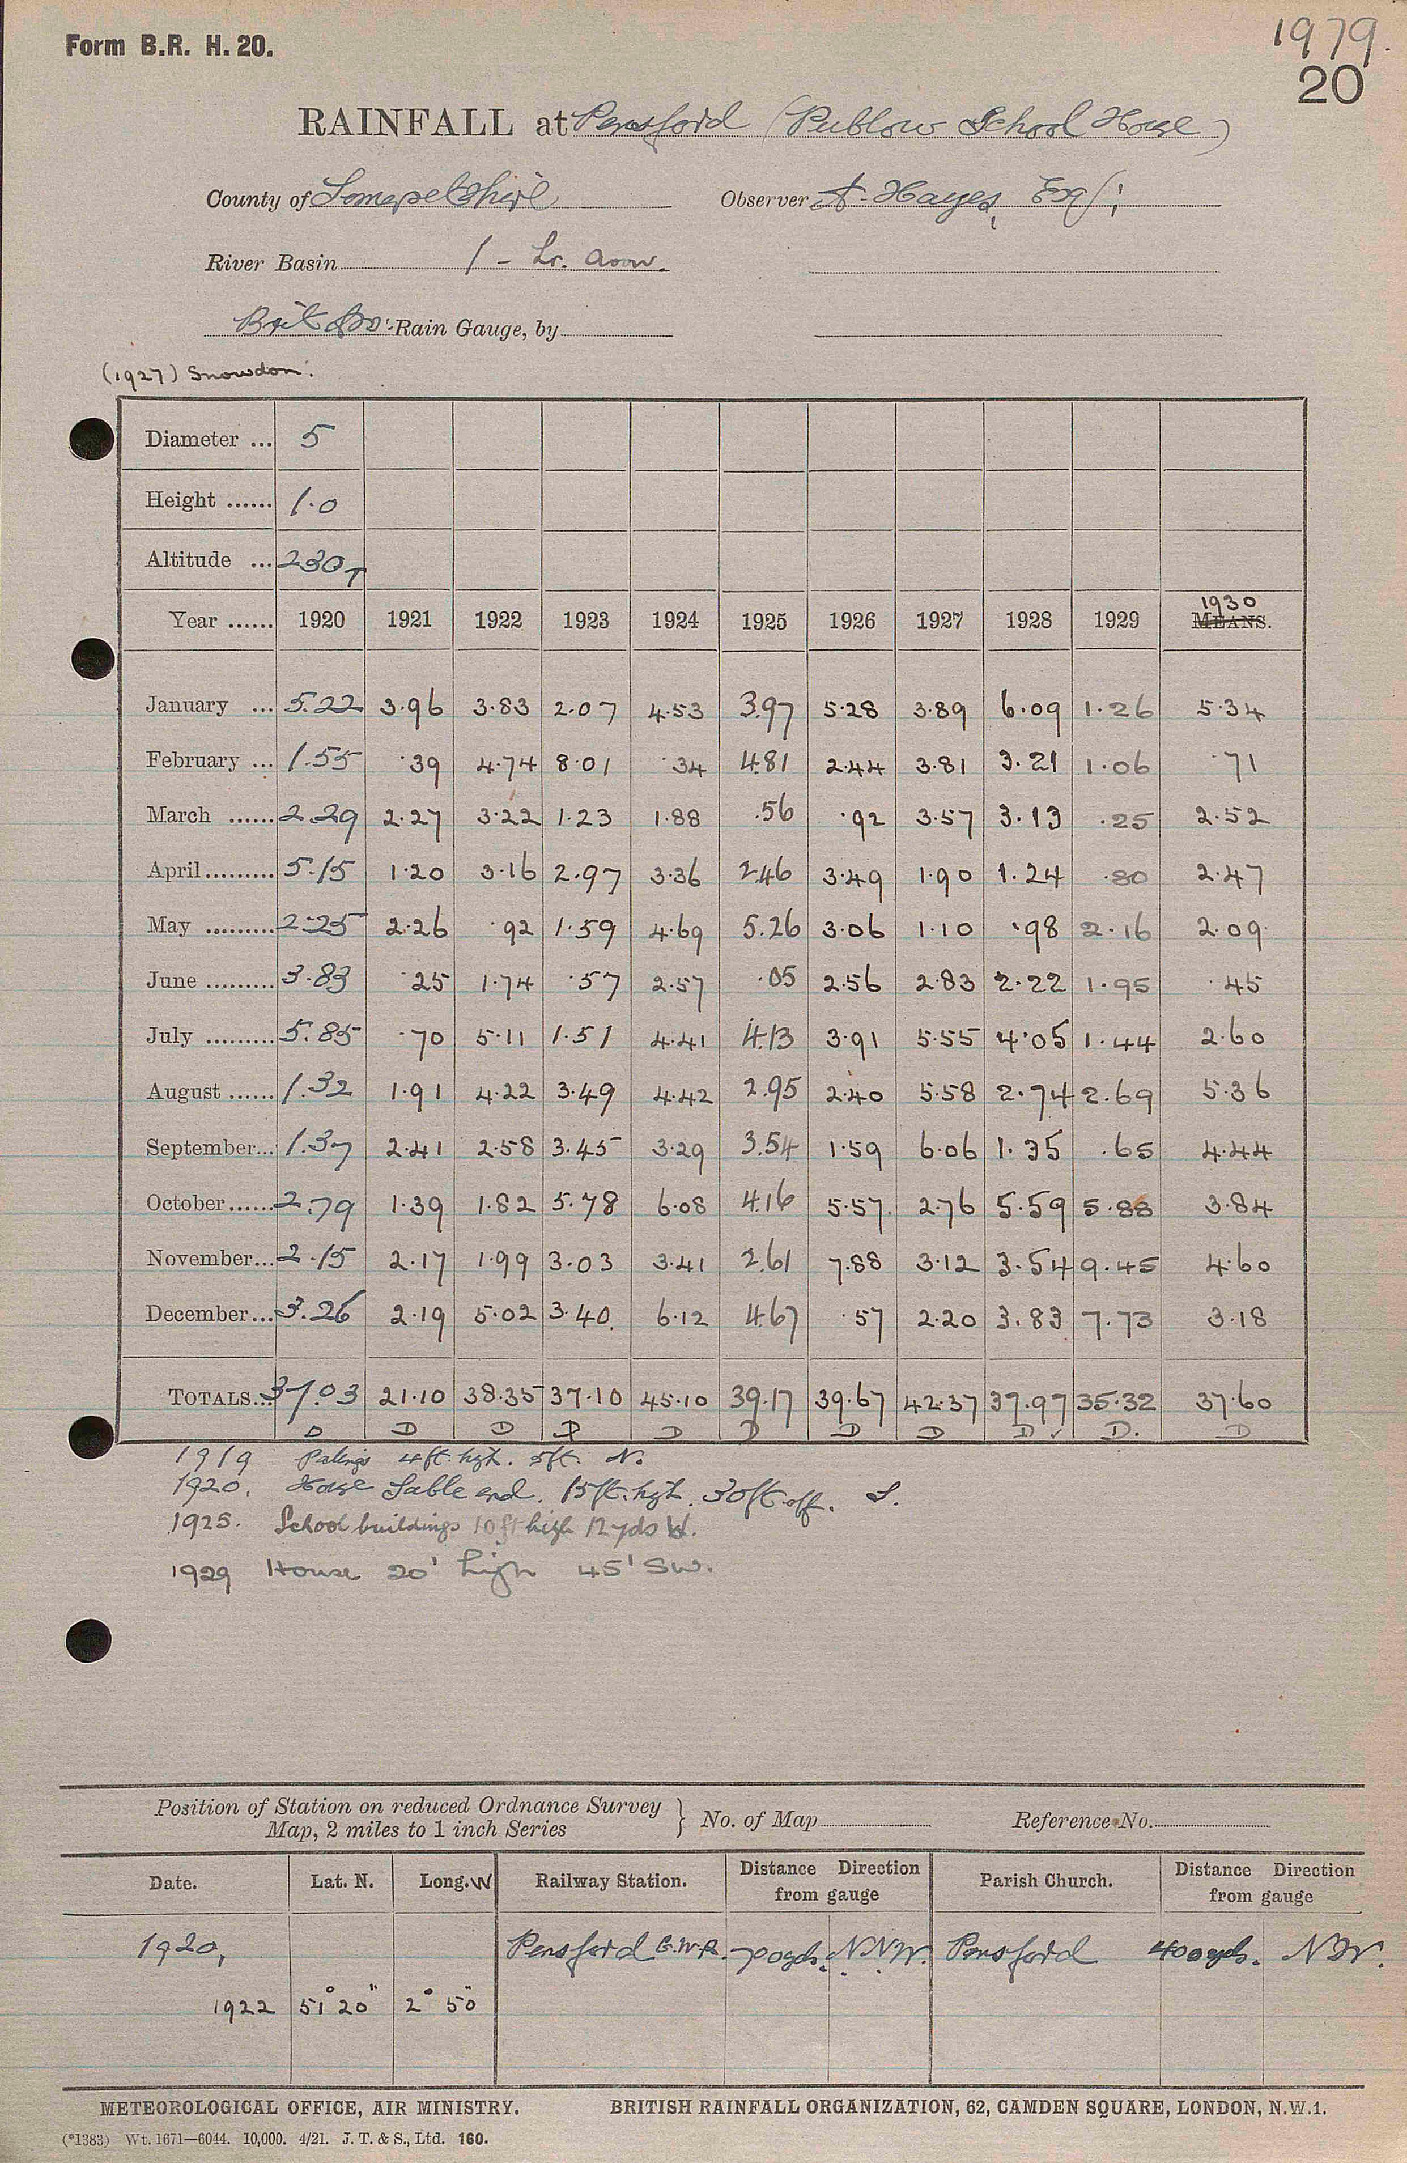 Form B.R. H. 20.
1979.
20
RAINFALL at Pensford (Publow School House)
County of Somersetshire Observer A. Hayes, Esq;
River Basin 1 - Lr. Avon.
Brit. Rain Gauge, by
(1927) Snowdon.
Diameter ... 5
Height ...... 1.0
Altitude ... 230 T
Year ...... 1920 1921 1922 1923 1924 1925 1926 1927 1928 1929 1930 MEANS.
January ... 5.22 3.96 3.83 2.07 4.53 3.97 5.28 3.89 6.09 1.26 5.34
February ... 1.55 .39 4.74 8.01 .34 4.81 2.44 3.81 3.21 1.06 .71
March ...... 2.29 2.27 3.22 1.23 1.88 .56 .92 3.57 3.13 .25 2.52
April ......... 5.15 1.20 3.16 2.97 3.36 2.46 3.49 1.90 1.24 .80 2.47
May ......... 2.25 2.26 .92 1.59 4.69 5.26 3.06 1.10 .98 2.16 2.09
June ......... 3.83 .25 1.74 .57 2.57 .05 2.56 2.83 2.22 1.95 .45
July ......... 5.85 .70 5.11 1.51 4.41 4.13 3.91 5.55 4.05 1.44 2.60
August ...... 1.32 1.91 4.22 3.49 4.42 2.95 2.40 5.58 2.74 2.69 5.36
September... 1.37 2.41 2.58 3.45 3.29 3.54 1.59 6.06 1.35 .65 4.44
October ...... 2.79 1.39 1.82 5.78 6.08 4.16 5.57 2.76 5.59 5.88 3.84
November... 2.15 2.17 1.99 3.03 3.41 2.61 7.88 3.12 3.54 9.45 4.60
December... 3.26 2.19 5.02 3.40 6.12 4.67 .57 2.20 3.83 7.73 3.18
TOTALS... 37.03 21.10 38.35 37.10 45.10 39.17 39.67 42.37 37.97 35.32 37.60
D D D D D D D D D ✓ D. D
1919 Palings 4ft. hgh. 5ft. N.
1920, House Gable end. 15ft. hgh. 30ft. off. S.
1925. School buildings 10ft high 12 yds W.
1929 House 20' high 45' SW.
Position of Station on reduced Ordnance Survey Map, 2 miles to 1 inch Series } No. of Map Reference No.
Date. Lat. N. Long. W Railway Station. Distance Direction from gauge Parish Church. Distance Direction from gauge
1920, Pensford G.W.R. 70 yds. N N W. Pensford 400 yds. N W.
1922 51° 20" 2° 50"
METEOROLOGICAL OFFICE, AIR MINISTRY. BRITISH RAINFALL ORGANIZATION, 62, CAMDEN SQUARE, LONDON, N.W.1.
(*1383) Wt. 1671—6044. 10,000. 4/21. J. T. & S., Ltd. 160.